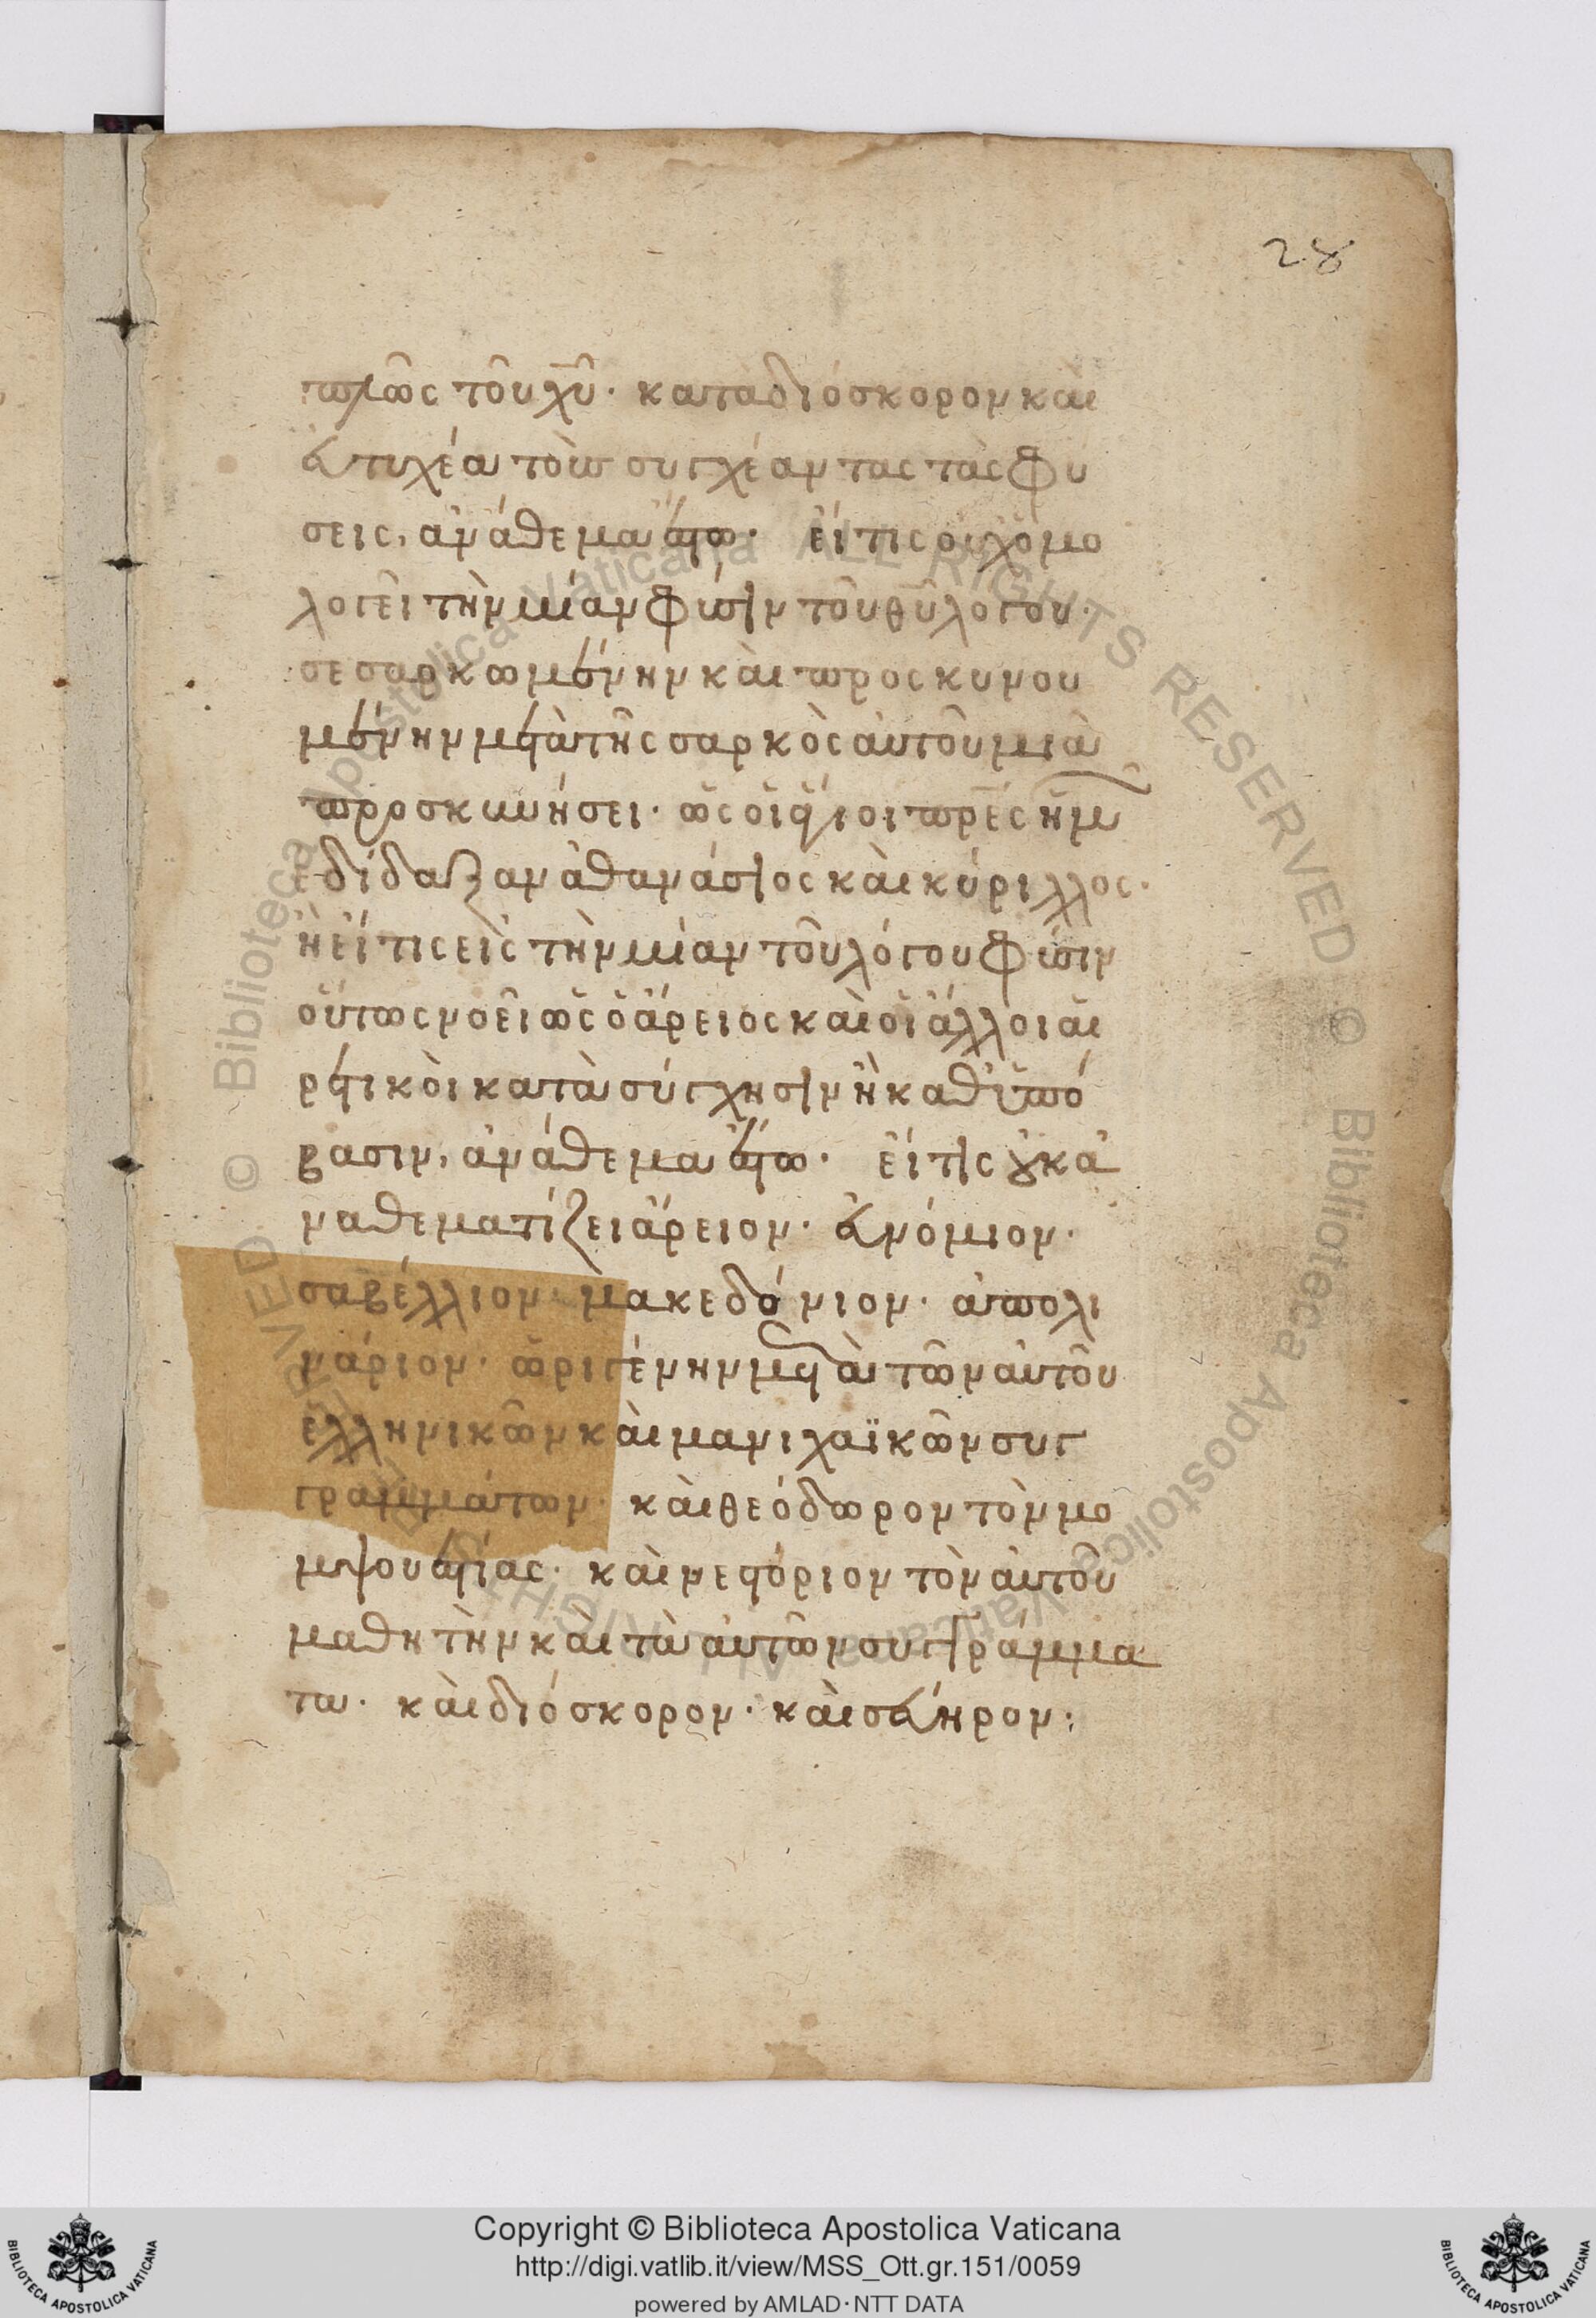 28
πλῶς τοῦ χυ̅. κατὰ διόσκορον καὶ
ἐυτυχέα τοὺς συγχέαντας τὰς φύ
σεις, ἀνάθεμα ἔστω. εἴ τις οὐχ ὁμο
λογεῖ τὴν μίαν φύσιν τοῦ θυ̅ λόγου.
σεσαρκωμένην καὶ προσκυνου
μένην μετὰ τῆς σαρκὸς αὐτοῦ μιᾶ
προσκυνήσει. ὡς οἱ ἅγιοι πρε̅ς ἡμῶν
ἐδίδαξαν ἀθανάσιος καὶ κύριλλος.
ἢ εἴ τις εἰς τὴν μίαν τοῦ λόγου φύσιν
οὕτως νοεῖ ὡς ὁ ἄρειος καὶ οἱ ἄλλοι αἱ
ρετικοὶ κατὰ σύγχησιν ἢ καθ' ὑπό
βασιν, ἀνάθεμα ἔστω. εἴ τις οὐκ ἀ
ναθεματίζει ἄρειον. ἐυνόμιον.
σαβέλλιον. μακεδόνιον. ἀπολι
νάριον. ὠριγένην μετὰ τῶν αὐτοῦ
ἑλληνικῶν καὶ μανιχαϊκῶν συγ
γραμμάτων. καὶ θεόδωρον τὸν μο
μψουεστίας. καὶ νεστόριον τὸν αὐτοῦ
μαθητὴν καὶ τὰ αὐτῶν συγγράμμα
τα. καὶ διόσκορον. καὶ σευῆρον:
Copyright © Biblioteca Apostolica Vaticana
http://digi.vatlib.it/view/MSS_Ott.gr.151/0059
powered by AMLAD · NTT DATA
BIBLIOTECA APOSTOLICA VATICANA
BIBLIOTECA APOSTOLICA VATICANA
© Biblioteca Apostolica Vaticana ALL RIGHTS RESERVED © Biblioteca Apostolica Vaticana ALL RIGHTS RESERVED